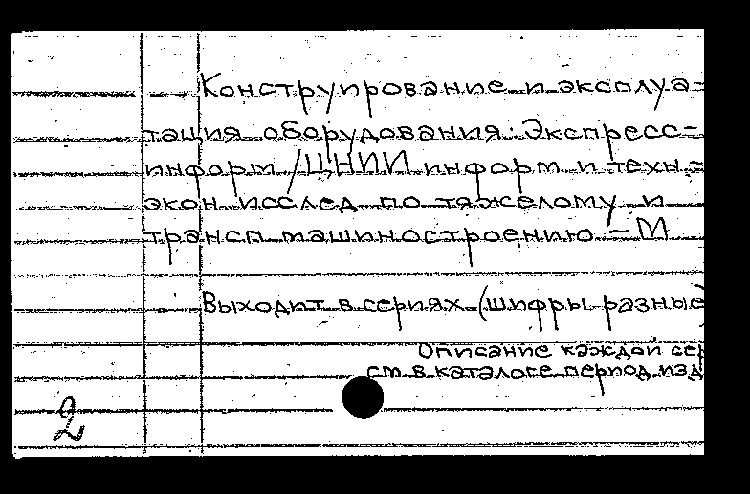 Конструирование и эксплуа-
тация оборудования: Экспресс-
информ /ЦНИИ информ и техн.-
экон исслед по тяжелому и
трансп машиностроению – М
Выходит в сериях (шифры разные)
Описание каждой сер
см в каталоге период изд
2